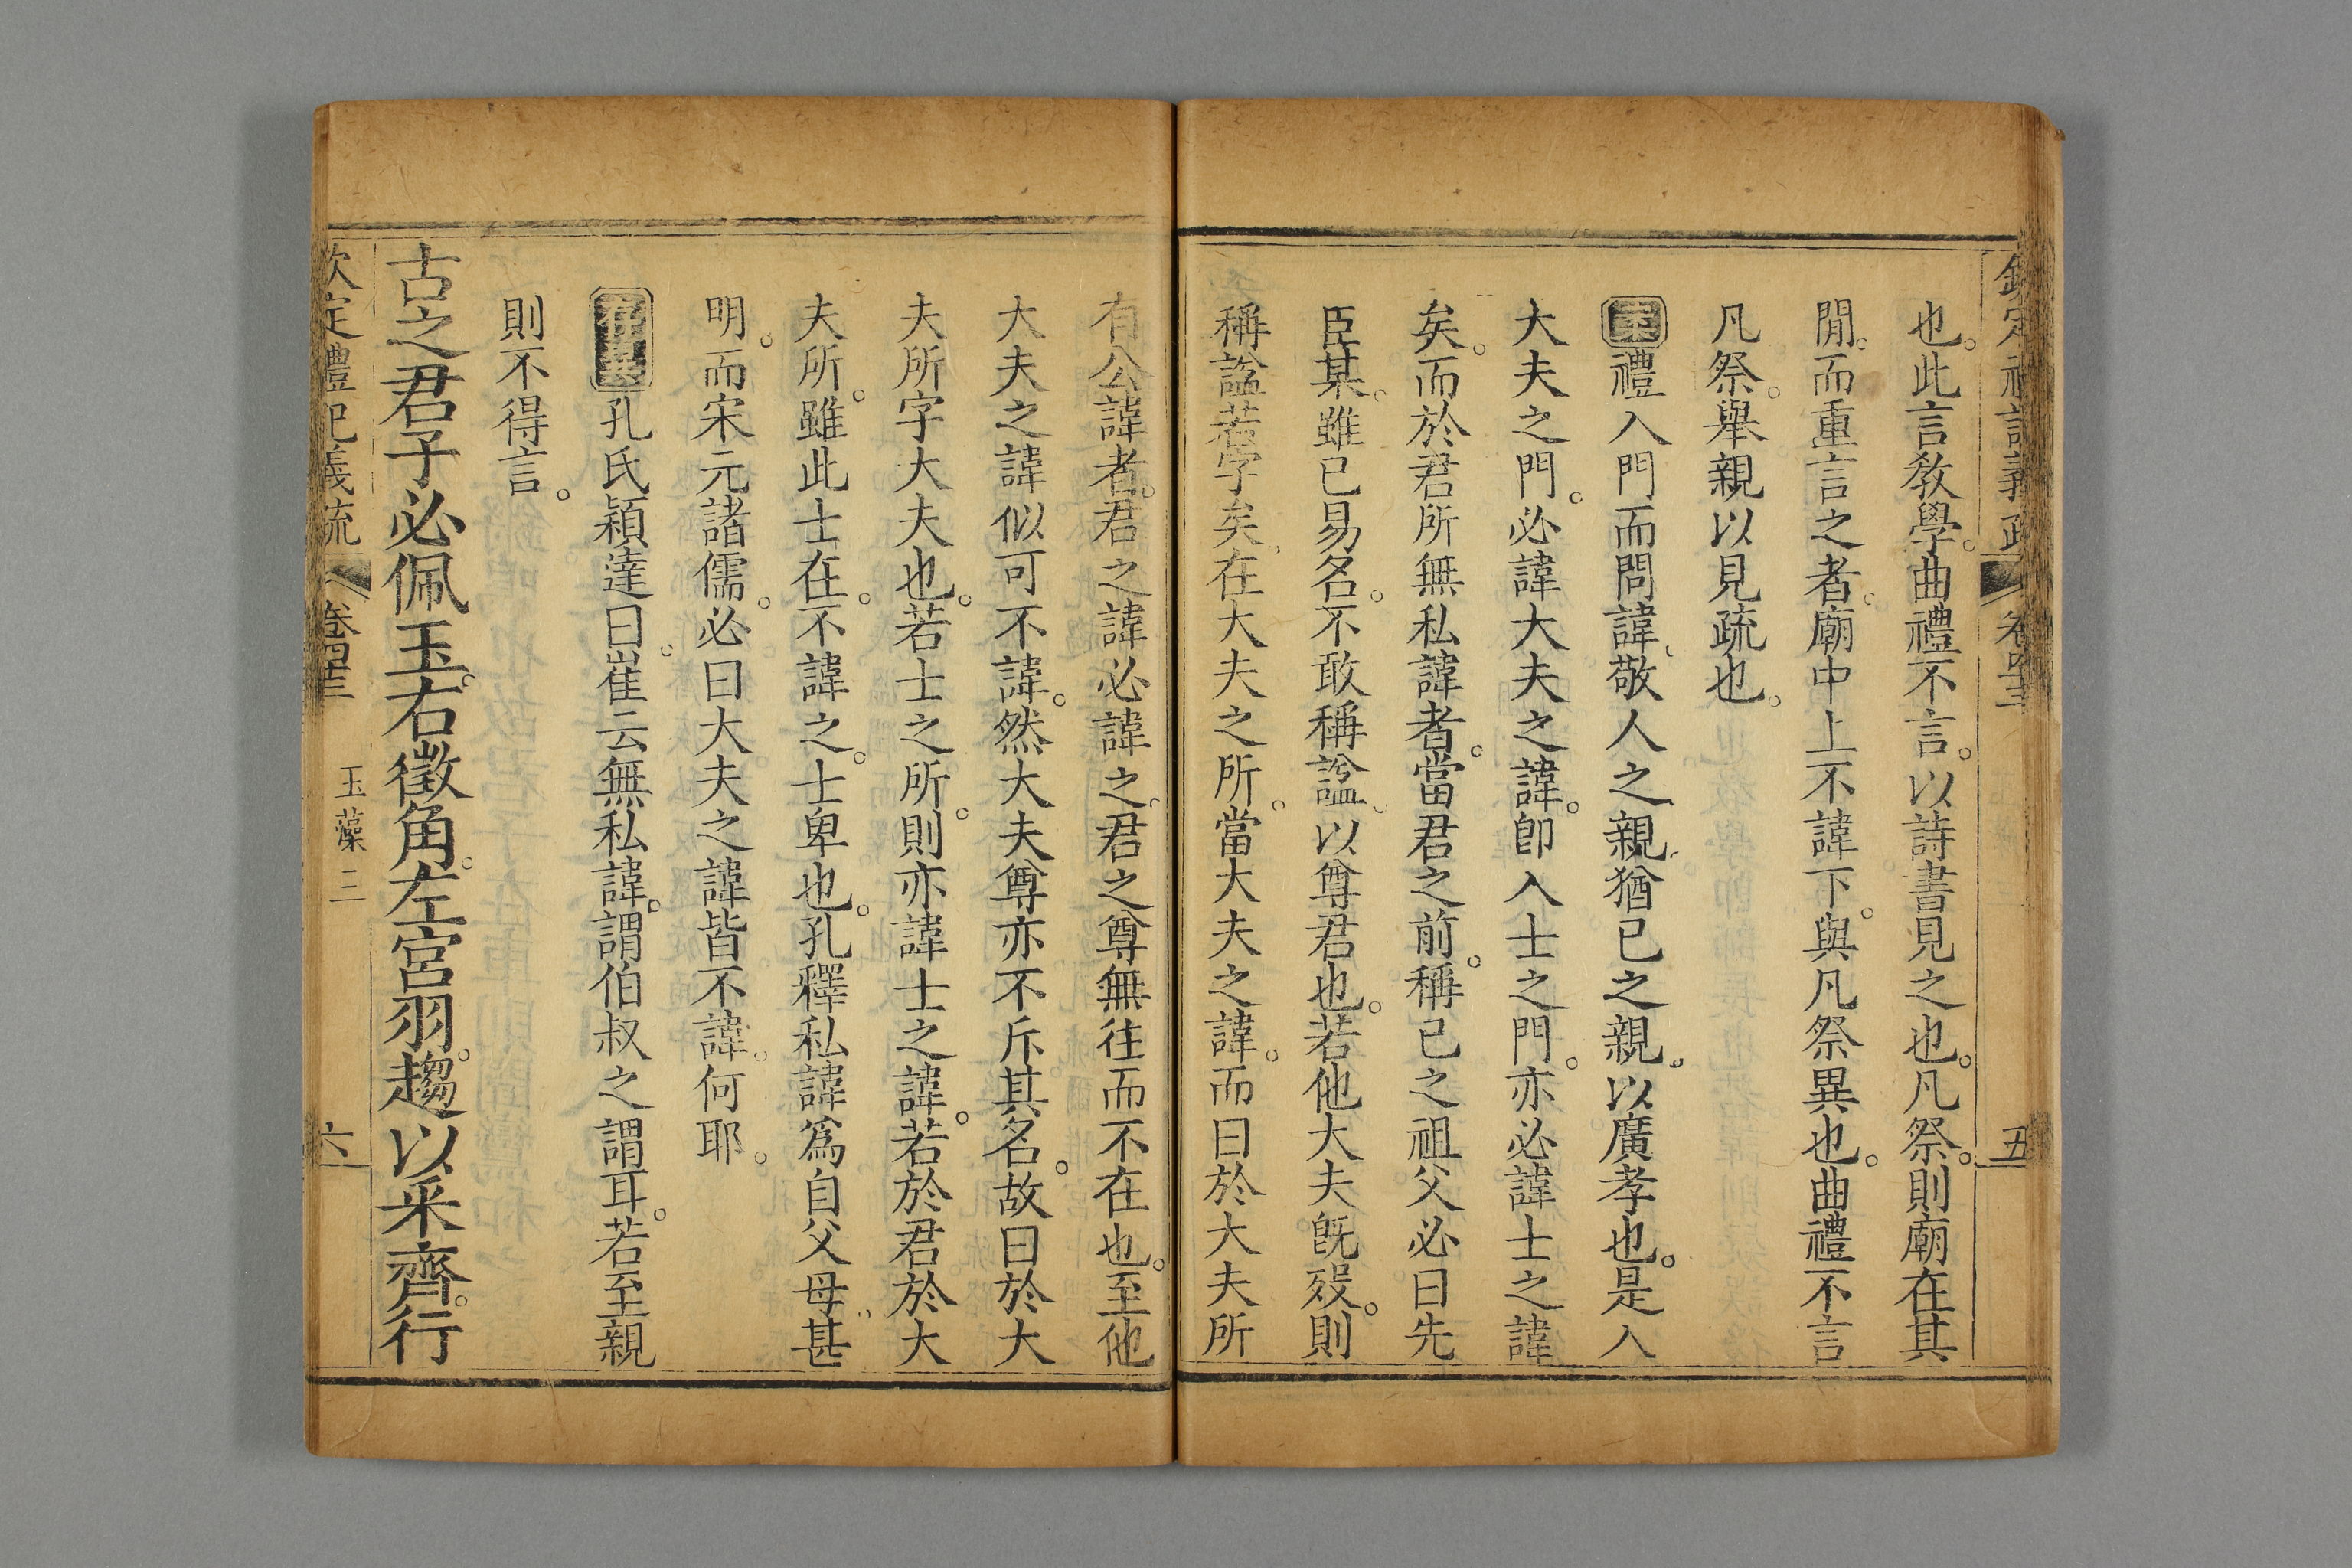 欽定禮記義疏 卷四十三 五
也。此言教學。曲禮不言。以詩書見之也。凡祭。則廟在其
閒。而重言之者。廟中上不諱下。與凡祭異也。曲禮不言
凡祭。舉親以見疏也。
案禮入門而問諱。敬人之親。猶己之親。以廣孝也。是入
大夫之門。必諱大夫之諱。卽入士之門。亦必諱士之諱
矣。而於君所無私諱者。當君之前。稱己之祖父必曰先
臣某。雖已易名。不敢稱謚。以尊君也。若他大夫旣歿。則
稱謚若字矣。在大夫之所。當大夫之諱。而曰於大夫所
有公諱者。君之諱必諱之。君之尊無往而不在也。至他
大夫之諱似可不諱。然大夫尊亦不斥其名。故曰於大
夫所字大夫也。若士之所。則亦諱士之諱。若於君於大
夫所。雖此士在。不諱之。士卑也。孔釋私諱爲自父母甚
明。而宋元諸儒。必曰大夫之諱皆不諱。何耶。
孔氏穎達曰。崔云無私諱。謂伯叔之謂耳。若至親
則不得言。
古之君子必佩玉。右徵角。左宮羽。趨以采齊。行
欽定禮記義疏 卷四十三 玉藻 三 六